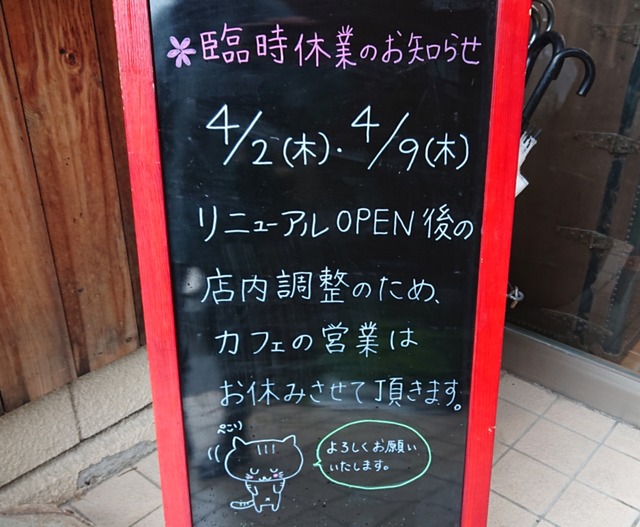 臨時休業のお知らせ
4/2(木)・4/9(木)
リニューアルOPEN後の
店内調整のため、
カフェの営業は
お休みさせて頂きます。
ぺこり
よろしくお願い
いたします。